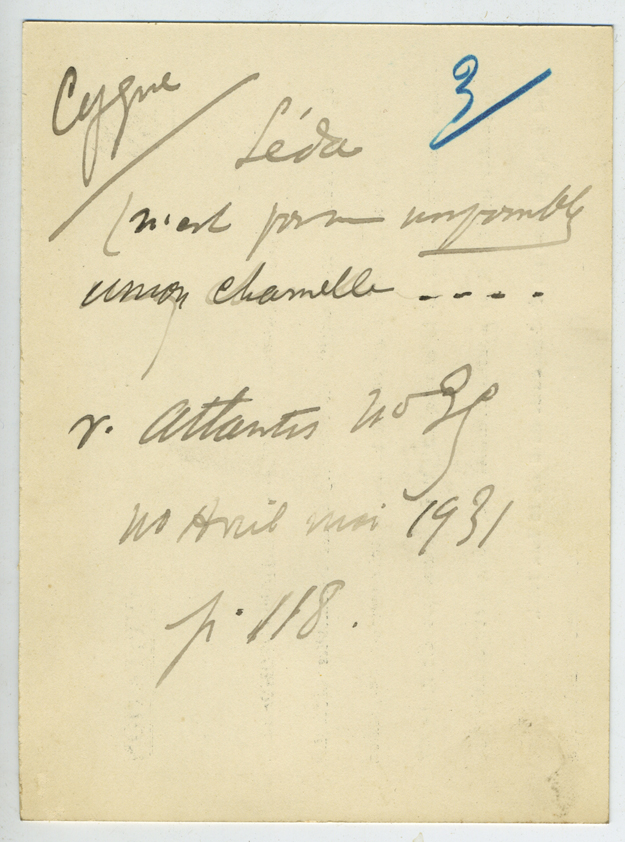 Cygne
3
Léda
(n'est pas une
union charnelle ....
v. Atlantis no
no Avril mai 1931
p. 118.